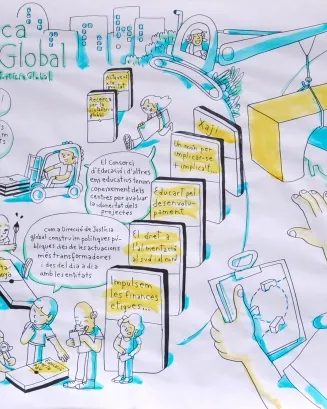 ca
Global
Justícia Global
Recerca
per la
global
Xaj!
Un món per
implicar-se
i implicar
Educar pel
desenvolu-
pament
El dret a
l'alimentació
al sud i al nord
Impulsem
les finances
ètiques...
El Consorci
d'Educació i d'altres
ens educatius tenim
coneixement dels
centres per avaluar
la idoneïtat dels
projectes
Com a Direcció de Justícia
global construïm polítiques pú-
bliques des de les actuacions
més transformadores
i des del dia a dia
amb les entitats